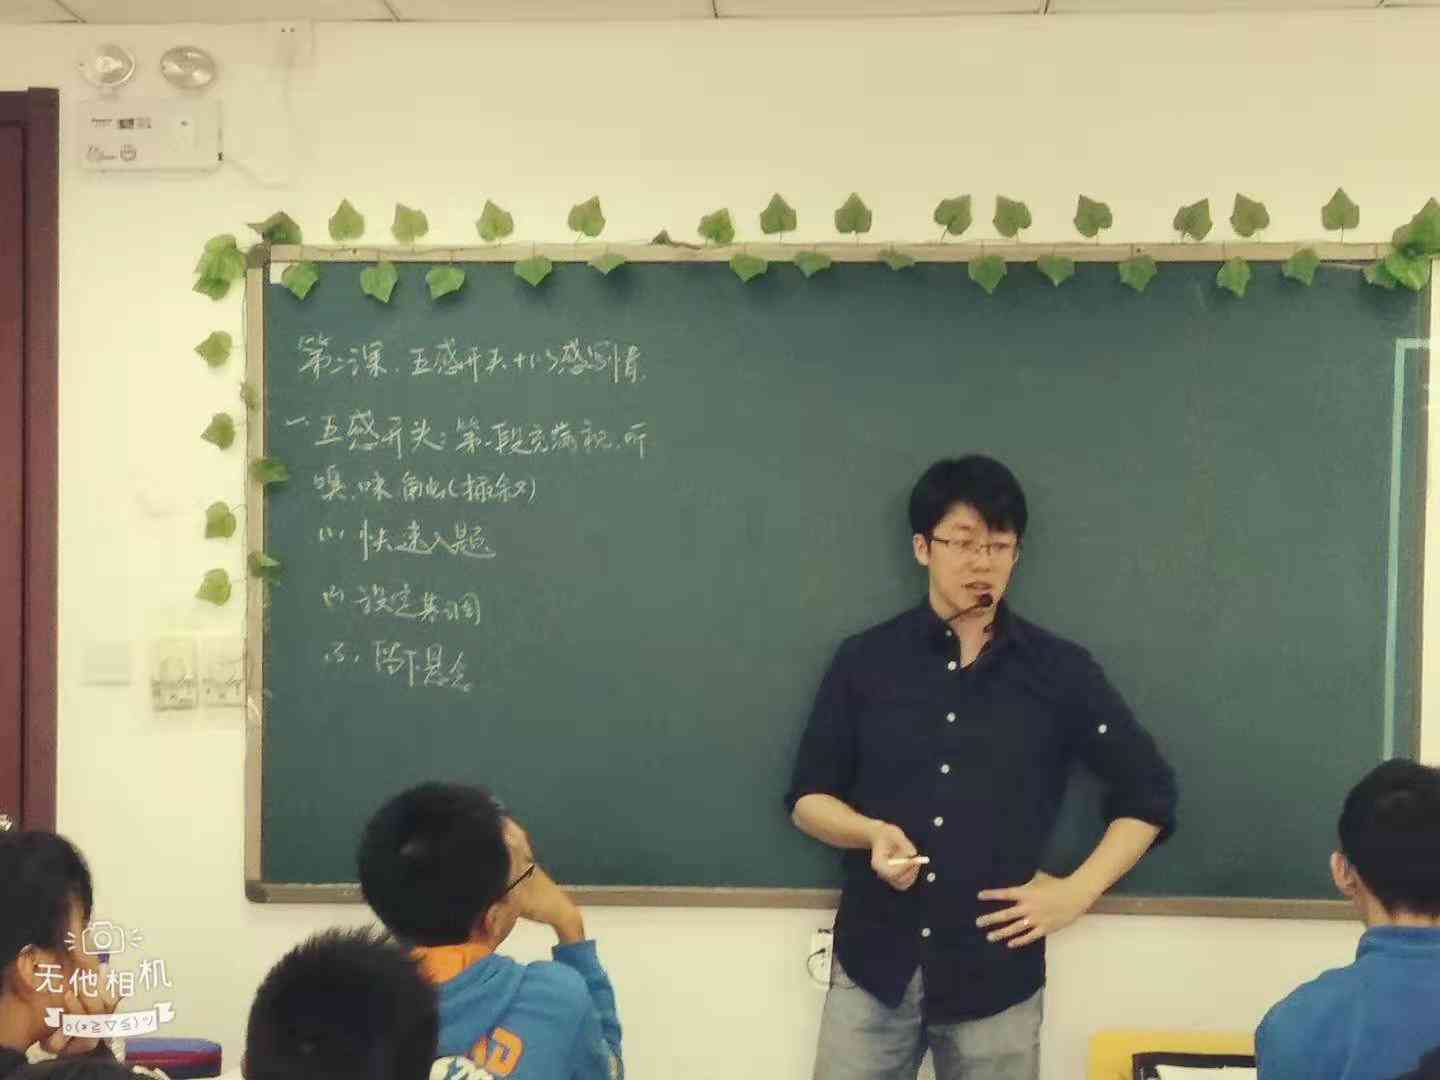 第二课、五感开头+以感写情
一、五感开头：第一段充满视、听
嗅、味、触(描叙)
(1) 快速入题
(2) 设定基调
(3) 留下悬念
无他相机
o(*≧▽≦)ツ